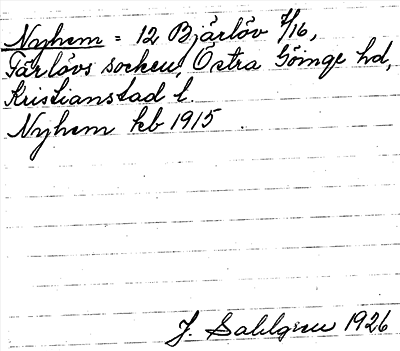 Nyhem = 12 Bjärlöv 1/16,
Färlövs socken, Östra Göinge hd,
Kristianstad l.
Nyhem kb 1915
J. Sahlgren 1926